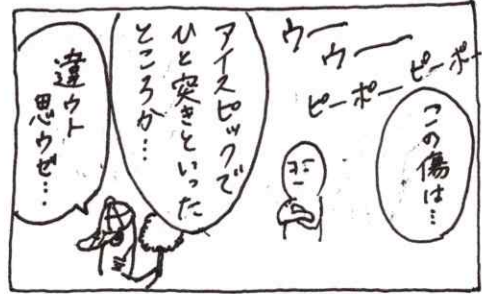 ウー
ウー
ピーポー
ピーポー
この傷は…
アイスピックで
ひと突きといった
ところか…
違ウト
思ウゼ…